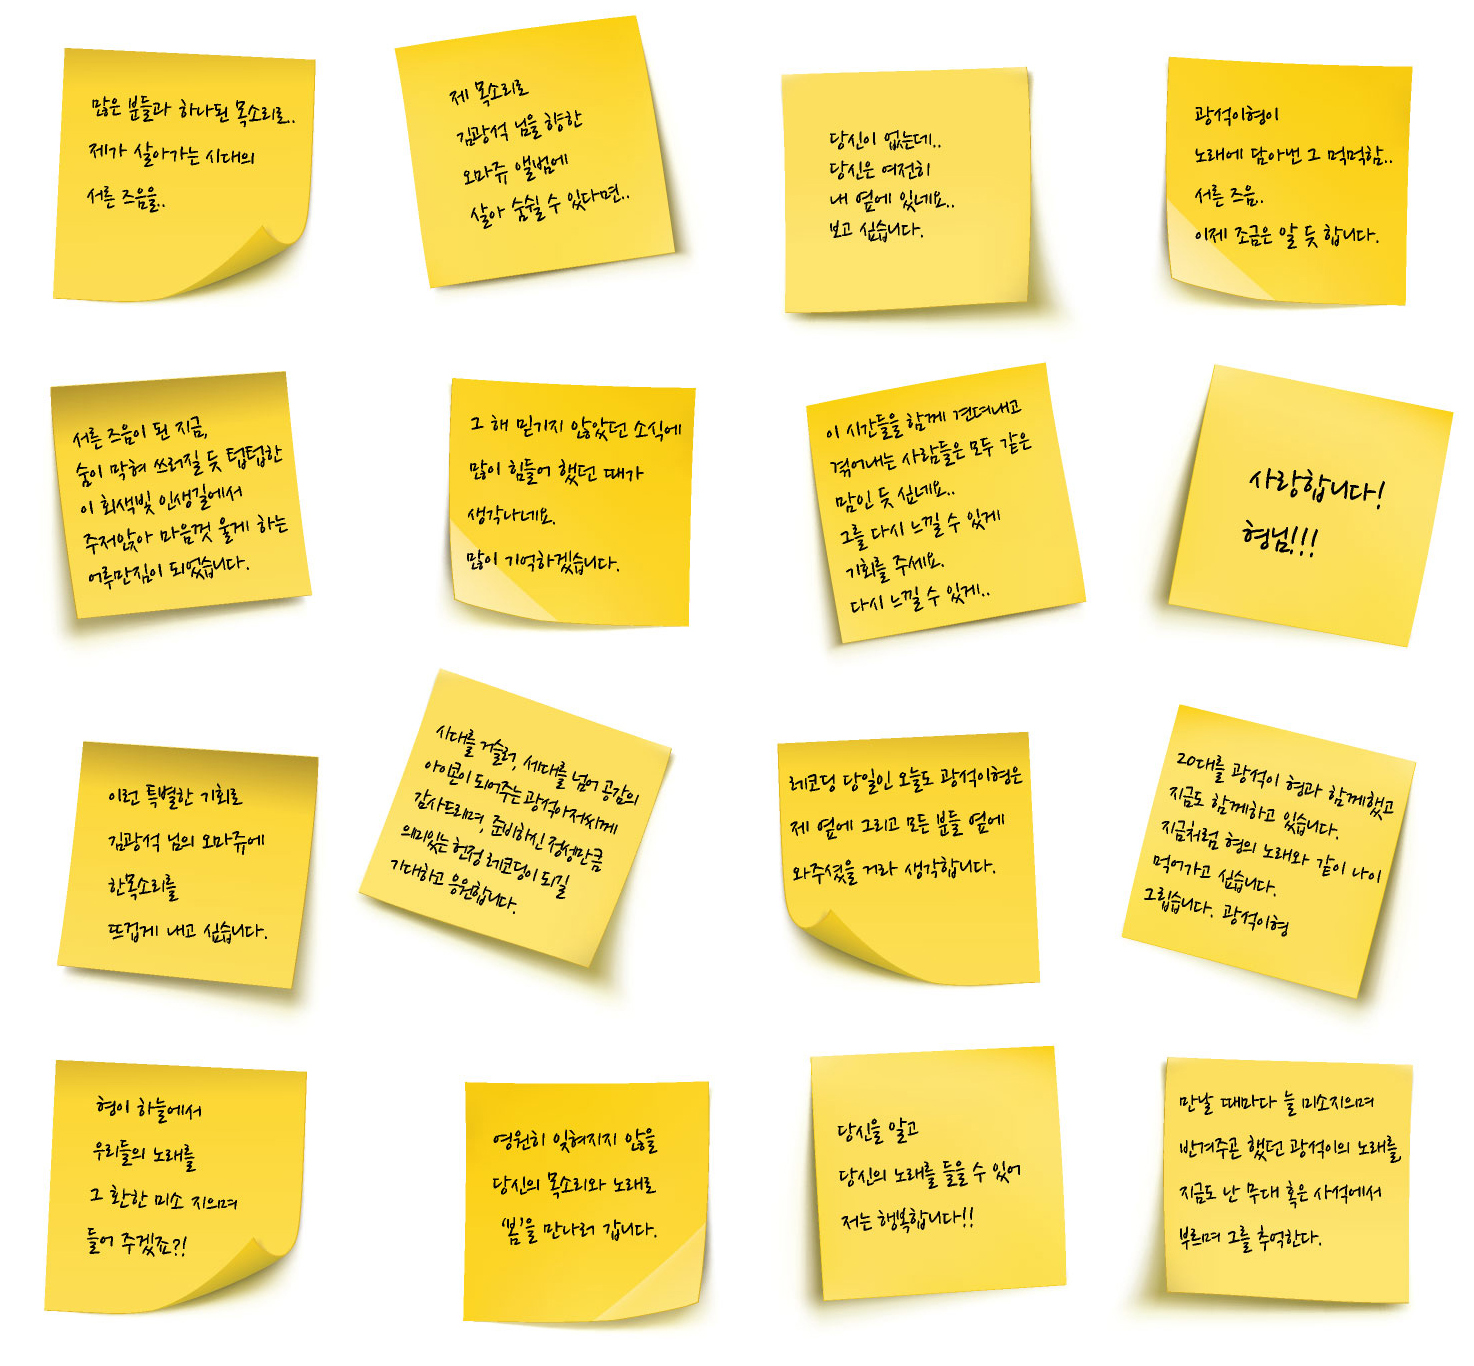 많은 분들과 하나된 목소리로..
제가 살아가는 시대의
서른 즈음을..
제 목소리로
김광석 님을 향한
오마쥬 앨범에
살아 숨쉴 수 있다면..
당신이 없는데..
당신은 여전히
내 옆에 있네요..
보고 싶습니다.
광석이형이
노래에 담아낸 그 먹먹함..
서른 즈음.
이제 조금은 알 듯 합니다.
서른 즈음이 된 지금,
숨이 막혀 쓰러질 듯 텁텁한
이 회색빛 인생길에서
주저앉아 마음껏 울게 하는
어루만짐이 되었습니다.
그 해 믿기지 않았던 소식에
많이 힘들어 했던 때가
생각나네요.
많이 기억하겠습니다.
이 시간들을 함께 견뎌내고
겪어내는 사람들은 모두 같은
맘인 듯 싶네요..
그를 다시 느낄 수 있게
기회를 주세요.
다시 느낄 수 있게..
사랑합니다!
형님!!!
이런 특별한 기회로
김광석 님의 오마쥬에
한목소리를
뜨겁게 내고 싶습니다.
시대를 거슬러, 세대를 넘어 공감의
아이콘이 되어주는 광석아저씨께
감사드리며, 준비하신 정성만큼
의미있는 헌정 레코딩이 되길
기대하고 응원합니다.
레코딩 당일인 오늘도 광석이형은
제 옆에 그리고 모든 분들 옆에
와주셨을 거라 생각합니다.
20대를 광석이 형과 함께했고
지금도 함께하고 있습니다.
지금처럼 형의 노래와 같이 나이
먹어가고 싶습니다.
그립습니다. 광석이형
형이 하늘에서
우리들의 노래를
그 환한 미소 지으며
들어 주겠죠?!
영원히 잊혀지지 않을
당신의 목소리와 노래로
'봄'을 만나러 갑니다.
당신을 알고
당신의 노래를 들을 수 있어
저는 행복합니다!!
만날 때마다 늘 미소지으며
반겨주곤 했던 광석이의 노래를,
지금도 난 무대 혹은 사석에서
부르며 그를 추억한다.